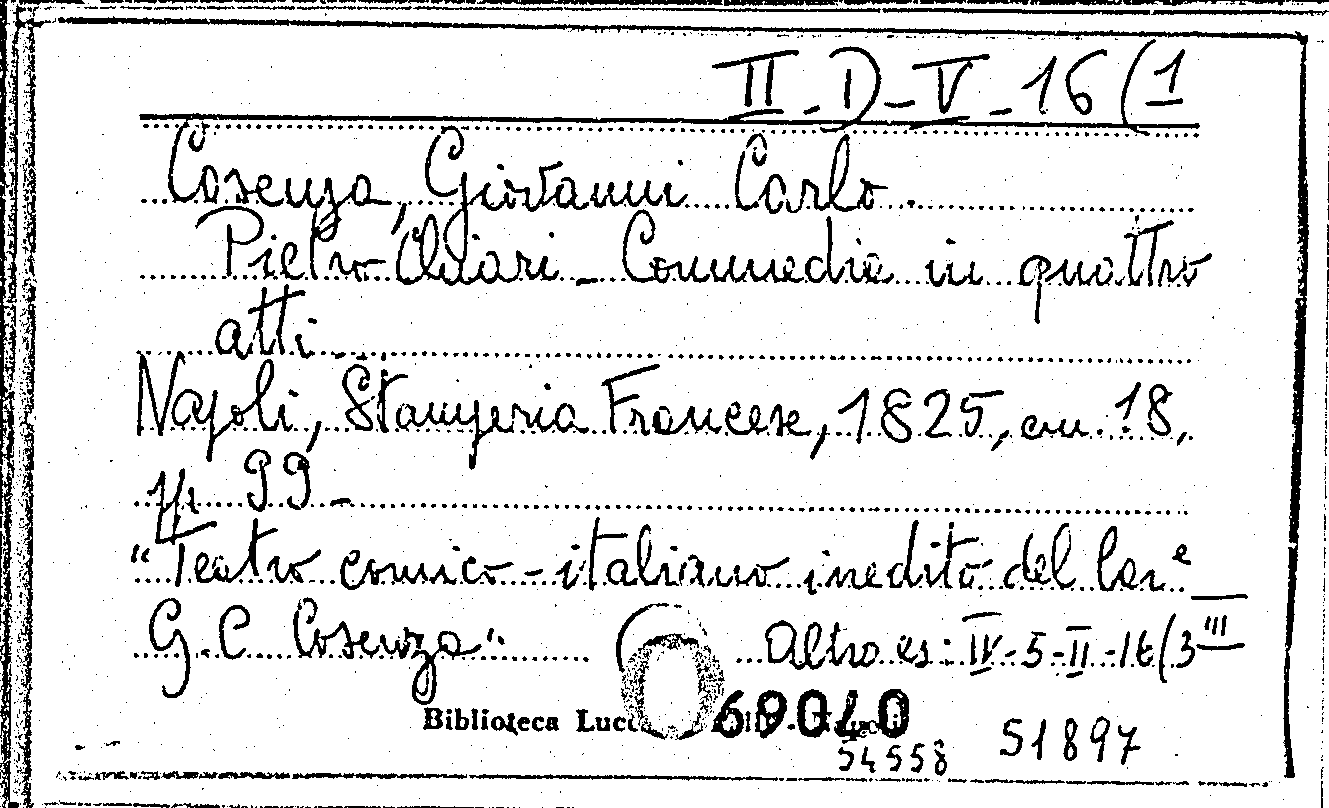 II-D-V-16(1
Cosenza, Giovanni Carlo.
Pietro Chiari - Commedia in quattro
atti.
Napoli, Stamperia Francese, 1825, cm. 18,
pp. 99 -
"Teatro comico-italiano inedito del Bar.e
G. C. Cosenza".
Altro es: IV-5-II-16(3III
Biblioteca
69040
54558
51897